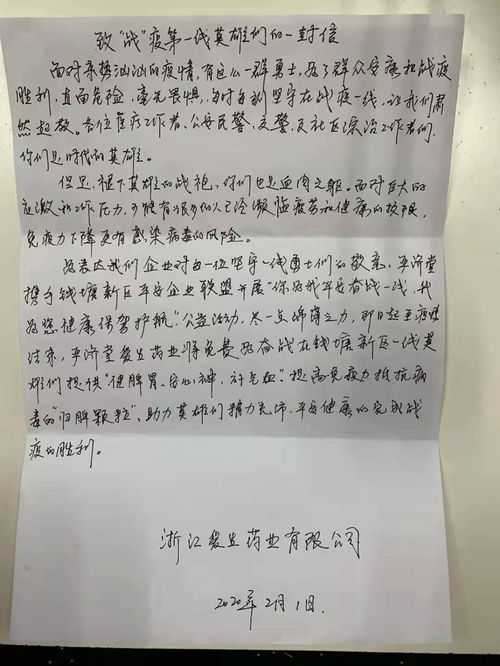 致"战"疫第一线英雄们的一封信
面对来势汹汹的疫情,有这么一群勇士,为了群众安康和战疫
胜利,直面危险,毫无畏惧,每时每刻坚守在战疫一线,让我们肃
然起敬。各位医疗工作者、公安民警、交警、及社区综治工作者们,
你们是时代的英雄。
但是,褪下英雄的战袍,你们也是血肉之躯。面对巨大的
应激和工作压力,可能有很多的人已经濒临疲劳和健康的极限,
免疫力下降更有感染病毒的风险。
为表达我们企业对每一位坚守一线勇士们的敬意,平济堂
携手钱塘新区平安企业联盟开展"你为我平安奋战一线,我
为您健康保驾护航"公益活动,尽一点绵薄之力,即日起至疫情
结束,平济堂 生药业将免费为奋战在钱塘新区一线英
雄们提供"健脾胃、安心神、补气血"提高免疫力抵抗病
毒的"归脾颗粒",助力英雄们精力充沛、平安健康的完成战
疫的胜利。
浙江 生药业有限公司
2020年2月1日.